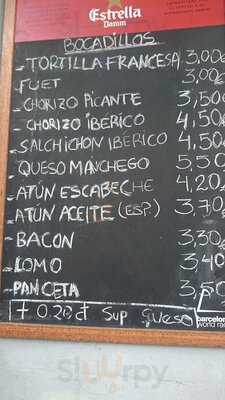 Estrella
Damm
BOCADILLOS
- TORTILLA FRANCESA 3,00€
- FUET 3,00€
- CHORIZO PICANTE 3,50€
- CHORIZO IBERICO 4,50€
- SALCHICHON IBERICO 4,50
- QUESO MANCHEGO 5,50
- ATÚN ESCABECHE 4,20
- ATÚN ACEITE (ESP.) 3,70
- BACON 3,30€
- LOMO 3,40
- PANCETA 3,50
+ 0.20 € Sup queso
barcelon
world ra
sluurpy